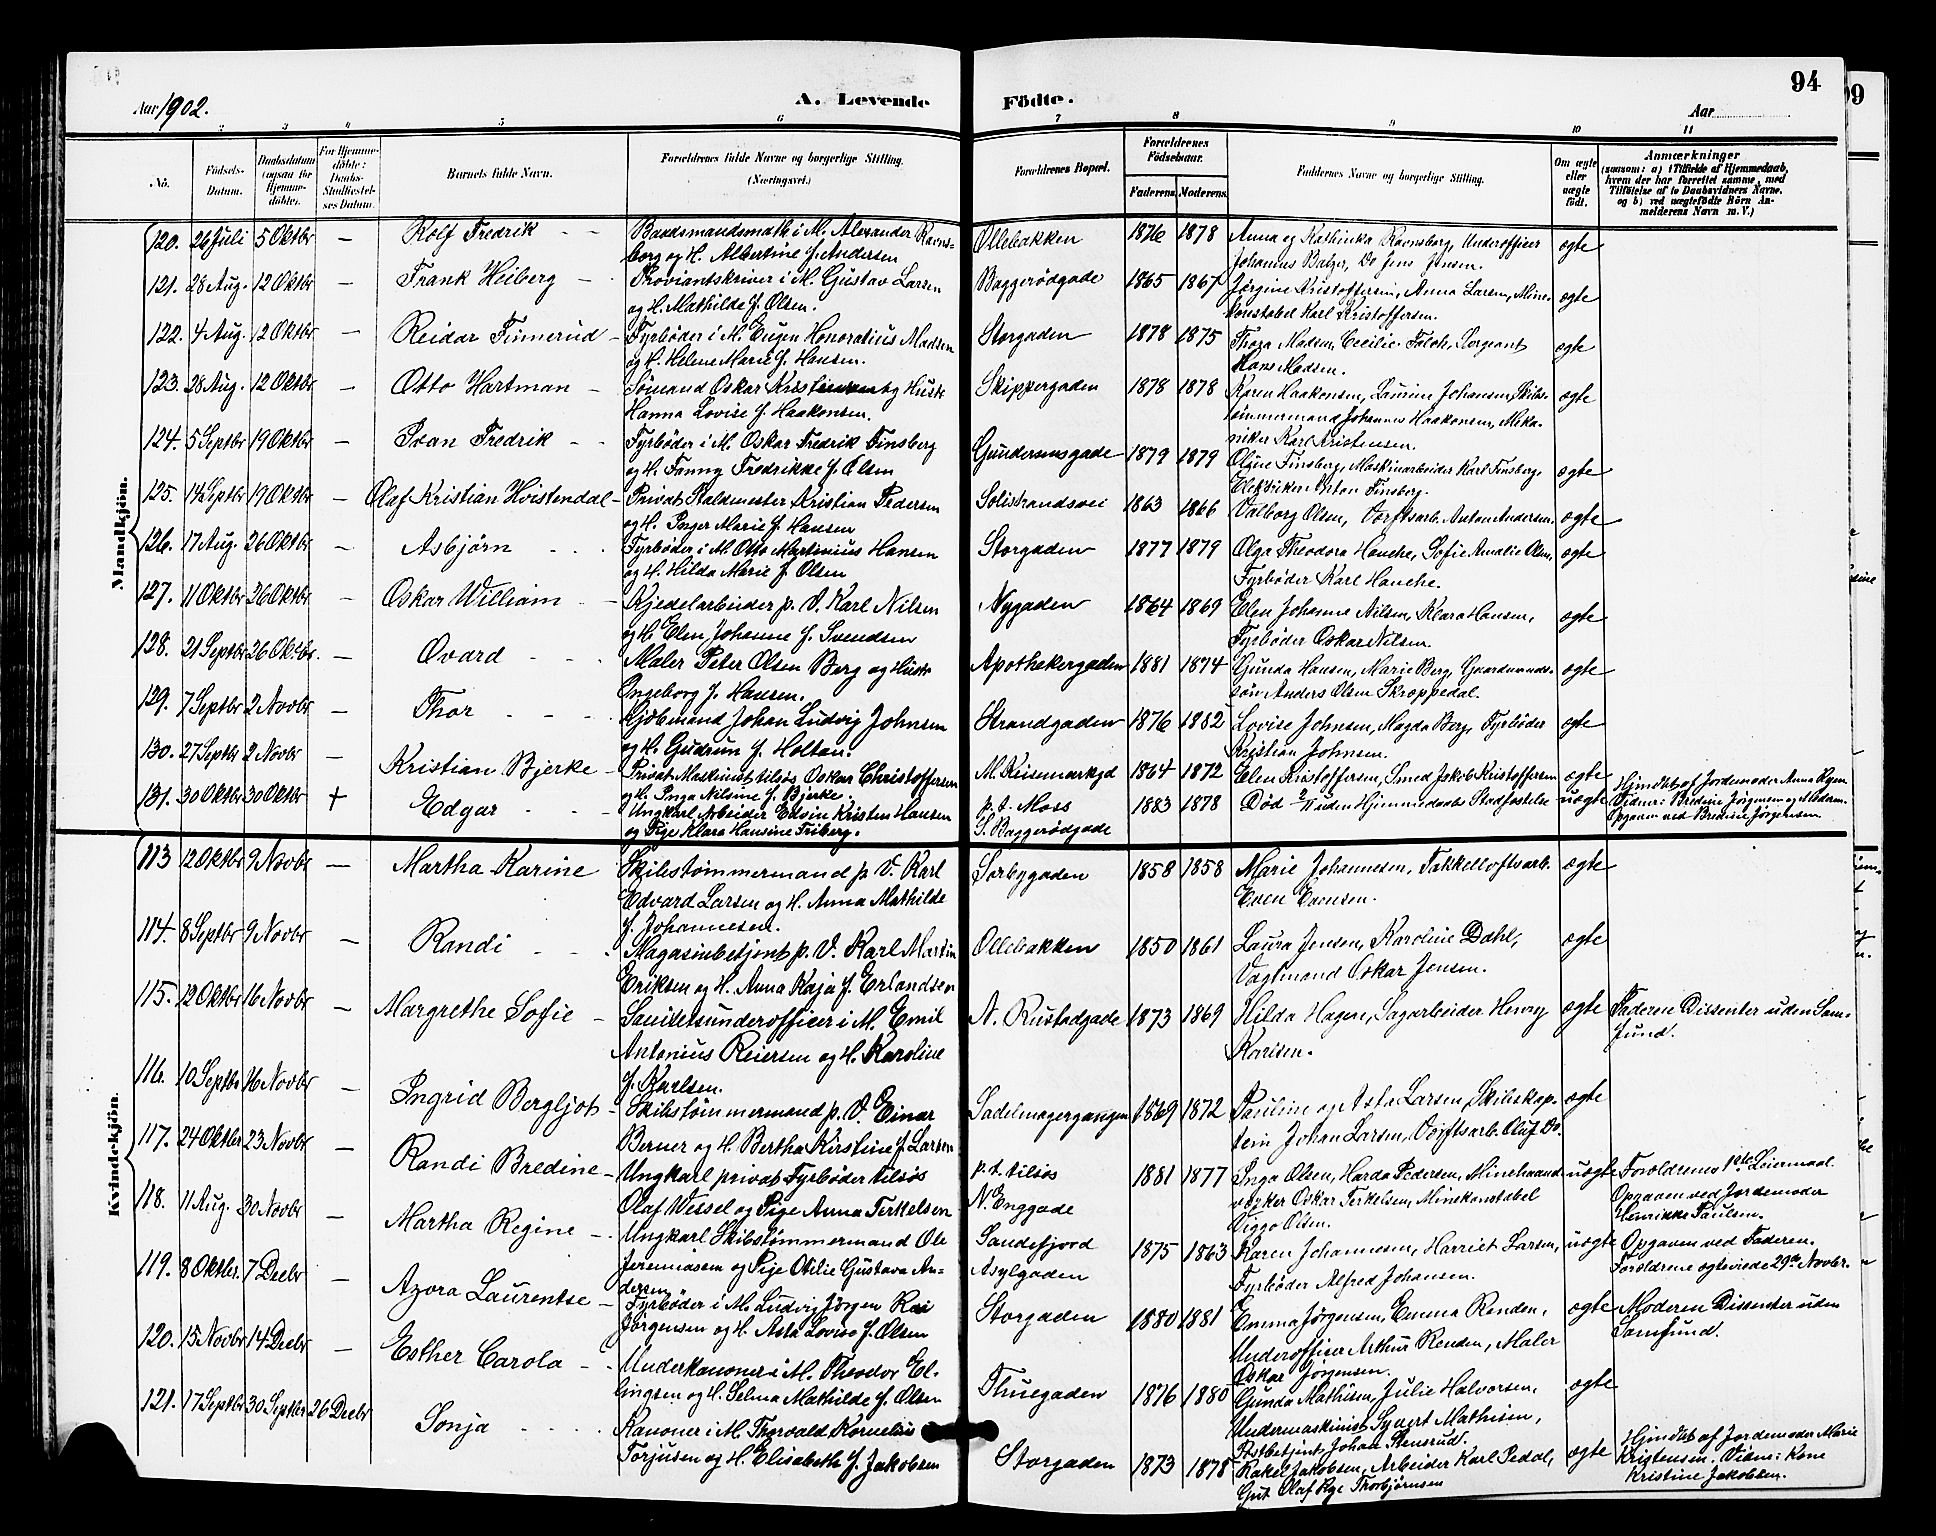 Aar 1902.
A. Levende
Födte.
94
Aar
2 3 4 5 6 7 8 9 10 11
No.
Födsels-Datum.
Daabsdatum (ogsaa for Hjemmedöbte).
For Hjemmedöbte: Daabs-Stadfæstelses Datum.
Barnets fulde Navn.
Forældrenes fulde Navne og borgerlige Stilling. (Næringsvei.)
Forældrenes Bopæl.
Forældrenes Födselsaar.
Faderens. Moderens.
Faddernes Navne og borgerlige Stilling.
Om ægte eller uægte födt.
Anmærkninger (saasom: a) i Tilfælde af Hjemmedaab, hvem der har forrettet samme, med Tilföielse af to Daabsvidners Navne, og b) ved uægtefödte Börn Anmelderens Navn m. V.)
Mandkjön.
120. 26 Juli 5 Oktbr — Rolf Fredrik Baadsmandsmath i M. Alexander Ravnsborg og H. Albertine f. Andersen Ollebakken 1876 1878 Anna og Kathinka Ravnsborg, Underofficer Johannes Balzer, Do Jens Jensen. ægte
121. 28 Aug. 12 Oktbr — Frank Heiberg Proviantskriver i M. Gustav Larsen og H. Mathilde f. Olsen. Baggerødgade 1865 1867 Jørgine Kristoffersen, Anna Larsen, Minekonstabel Karl Kristoffersen. ægte
122. 4 Aug. 12 Oktbr — Reidar Finnerud Fyrbøder i M. Eugen Honoratius Madsen og H. Helene Marie f. Hansen. Storgaden 1878 1875 Thora Madsen, Cecilie Falch, Sergeant Hans Madsen. ægte
123. 28 Aug. 12 Oktbr — Otto Hartman Sømand Oskar Kristiansen og Hustr Hanna Lovise f. Haakonsen. Skippergaden 1878 1878 Karen Haakonsen, Laurine Johansen, Skibstømmermand Johannes Haakonsen, Mekaniker Karl Kristensen. ægte
124. 5 Septbr 19 Oktbr — Ivan Fredrik Fyrbøder i M. Oskar Fredrik Finsberg og H. Fanny Fredrikke f. Olsen Gundersensgade 1879 1879 Olgine Finsberg, Maskinarbeider Karl Finsberg, Elektriker Anton Finsberg. ægte
125. 14 Septbr 19 Oktbr — Olaf Kristian Hvistendal Privat Staldmester Kristian Pedersen og H. Inger Marie f. Hansen Solistrandsvei 1863 1866 Valborg Olsen, Værftsarb. Anton Andersen. ægte
126. 17 Aug. 26 Oktbr — Asbjørn Fyrbøder i M. Otto Martinius Hansen og H. Hilda Marie f. Olsen Storgaden 1877 1879 Olga Theodora Hauche, Sofie Amalie Olsen, Fyrbøder Karl Hauche. ægte
127. 11 Oktbr 26 Oktbr — Oskar William Kjedelarbeider p. V. Karl Nilsen og H. Elen Johanne f. Svendsen Nygaden 1864 1869 Elen Johanne Nilsen, Klara Hansen, Fyrbøder Oskar Nilsen. ægte
128. 21 Septbr 26 Oktbr. — Ovard Maler Peter Olsen Berg og Hustr Ingeborg f. Hansen. Apothekergaden 1881 1874 Gunda Hansen, Marie Berg, Gaardmandssøn Anders Olsen Skroppedal. ægte
129. 7 Septbr 2 Novbr — Thor Kjøbmand Johan Ludvig Johnsen og H. Gudrun f. Holtan. Strandgaden 1876 1882 Lovise Johnsen, Magda Berg, Fyrbøder Kristian Johnsen. ægte
130. 27 Septbr 2 Novbr — Kristian Bjerke Privat Maskinist tilsøs Oskar Christoffersen og H. Inga Nilsine f. Bjerke. M. Reismarkgd 1864 1872 Elen Kristoffersen, Smed Jakob Kristoffersen ægte
131. 30 Oktbr 30 Oktbr + Edgar Ungkarl Arbeider Edvin Kristen Hansen og Pige Klara Hansine Friberg. p. t. Moss S. Baggerødgade 1883 1878 Død 2/11 uden Hjemmedaabs Stadfæstelse uægte Hjmdøbt af Jordemoder Anna Vidner: Bredine Jørgensen og Madam. Opgaven ved Bredine Jørgensen
Kvindekjön.
113 12 Oktbr 9 Novbr — Martha Karine Skibstømmermand p. V. Karl Edvard Larsen og H. Anna Mathilde f. Johannesen. Sørbygaden 1858 1858 Marie Johannesen, Takkelloftsarb. Even Evensen. ægte
114. 8 Septbr 9 Novbr — Randi Magasinbetjent p. V. Karl Martin Eriksen og H. Anna Kaja f. Erlandsen Ollebakken 1850 1861 Laura Jensen, Karoline Dahl, Vagtmand Oskar Jensen. ægte
115. 12 Oktbr 16 Novbr — Margrethe Sofie Sanitetsunderofficer i M. Emil Antonius Reiersen og H. Karoline f. Karlsen. N. Rustadgade 1873 1869 Hilda Hagen, Sagarbeider Henry Karlsen. ægte Faderen Dissenter uden Samfund.
116. 10 Septbr 16 Novbr — Ingrid Bergljot Skibstømmermand p. V. Einar Berner og H. Bertha Kirstine f. Larsen Sadelmagergangen 1869 1872 Pauline og Asta Larsen, Skibskaptein Johan Larsen, Værftsarb. Oluf Do. ægte
117. 24 Oktbr 23 Novbr — Randi Bredine Ungkarl privat Fyrbøder tilsøs Olaf Wessel og Pige Anna Terkelsen p. t. tilsøs N. Enggade 1881 1877 Inga Olsen, Harda Pedersen, Minehaandværker Oskar Terkelsen, Minekonstabel Viggo Olsen. uægte Forældrenes 1ste Leiermaal Opgaven ved Jordemoder Henrikke Paulsen.
118. 11 Aug. 30 Novbr — Martha Regine Ungkarl Skibstømmermand Ole Jeremiasen og Pige Otilie Gustava Andersen Sandefjord Asylgaden 1875 1863 Karen Johannesen, Harriet Larsen, Fyrbøder Alfred Johansen. uægte Opgaven ved Faderen. Forældrene ægteviede 29de Novbr.
119. 8 Oktbr. 7 Decbr — Azora Laurentse Fyrbøder i M. Ludvig Jørgen Roi Jørgensen og H. Asta Lovise f. Olsen Storgaden 1880 1881 Emma Jørgensen, Emma Renden, Underofficer Arthur Renden, Maler Oskar Jørgensen. ægte Moderen Dissenter uden Samfund.
120. 15 Novbr 14 Decbr — Esther Carola Underkanoner i M. Theodor Ellingsen og H. Selma Mathilde f. Olsen Thuegaden 1876 1880 Gunda Mathisen, Julie Halvorsen, Undermaskinist Syvert Mathisen, Postbetjent Johan Stensrud. ægte
121. 17 Septbr 30 Septbr 26 Decbr Sonja Kanoner i M. Thorvald Kornelius Torjusen og H. Elisabeth f. Jakobsen Storgaden 1873 1878 Rakel Jakobsen, Arbeider Karl Pedal, Gut Olaf Age Thorbjørnsen ægte Hjmdøbt af Jordemoder Marie Kristensen. Vidne: Kone Kristine Jakobsen.